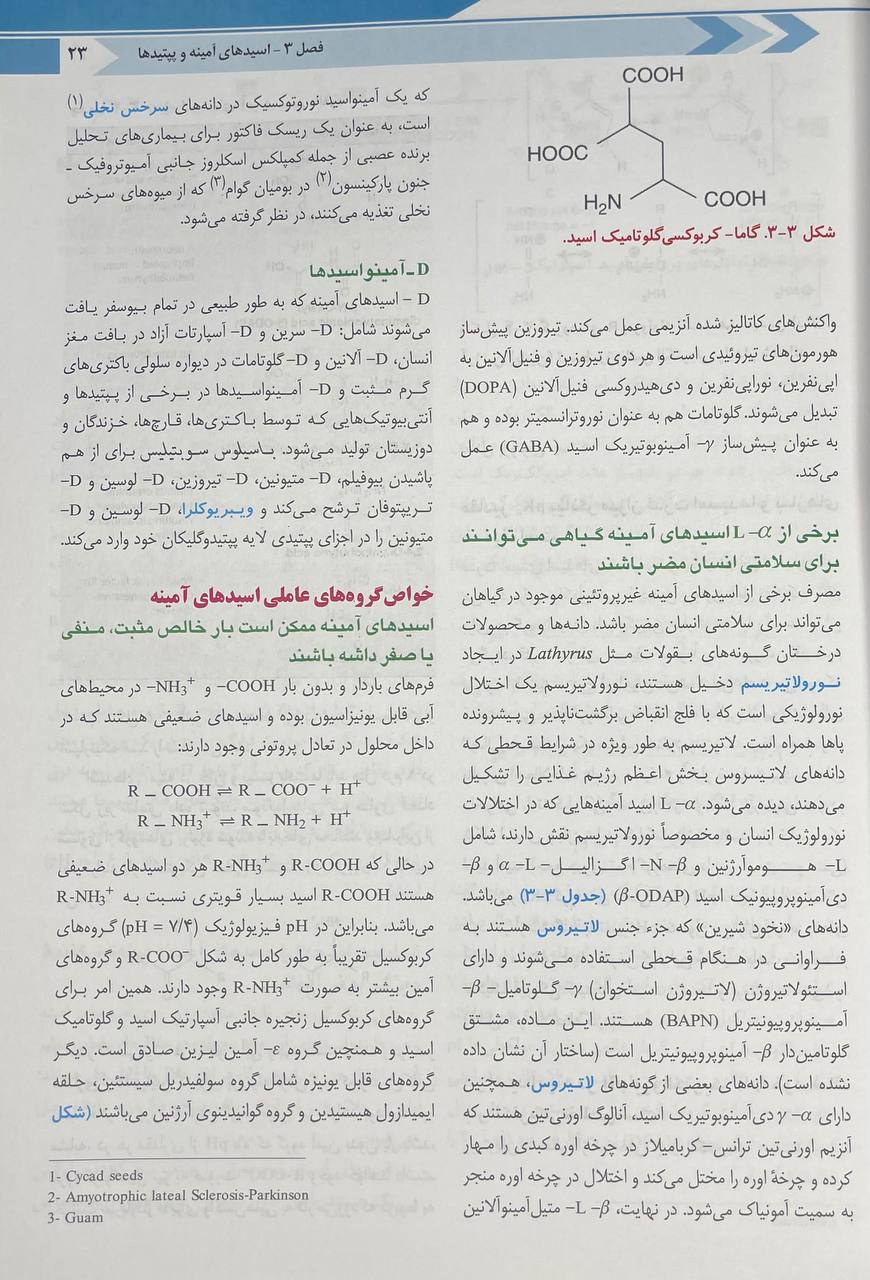 فصل ۳ - اسیدهای آمینه و پپتیدها
۲۳
COOH
HOOC
H₂N
COOH
شکل ۳-۳. گاما- کربوکسی‌گلوتامیک اسید.
واکنش‌های کاتالیز شده آنزیمی عمل می‌کند. تیروزین پیش‌ساز
هورمون‌های تیروئیدی است و هر دوی تیروزین و فنیل‌آلانین به
اپی‌نفرین، نوراپی‌نفرین و دی‌هیدروکسی فنیل‌آلانین (DOPA)
تبدیل می‌شوند. گلوتامات هم به عنوان نوروترانسمیتر بوده و هم
به عنوان پیش‌ساز γ- آمینوبوتیریک اسید (GABA) عمل
می‌کند.
برخی از L-α اسیدهای آمینه گیاهی می‌توانند
برای سلامتی انسان مضر باشند
مصرف برخی از اسیدهای آمینه غیرپروتئینی موجود در گیاهان
می‌تواند برای سلامتی انسان مضر باشد. دانه‌ها و محصولات
درختان گونه‌های بقولات مثل Lathyrus در ایجاد
نورولاتیریسم دخیل هستند، نورولاتیریسم یک اختلال
نورولوژیکی است که با فلج انقباض برگشت‌ناپذیر و پیشرونده
پاها همراه است. لاتیریسم به طور ویژه در شرایط قحطی که
دانه‌های لاتیسروس بخش اعظم رژیم غذایی را تشکیل
می‌دهند، دیده می‌شود. L-α اسید آمینه‌هایی که در اختلالات
نورولوژیک انسان و مخصوصاً نورولاتیریسم نقش دارند، شامل
L- هوموآرژنین و β-N- اگزالیل-L-α و β-
دی‌آمینوپروپیونیک اسید (β-ODAP) (جدول ۳-۳) می‌باشد.
دانه‌های «نخود شیرین» که جزء جنس لاتیروس هستند به
فراوانی در هنگام قحطی استفاده می‌شوند و دارای
استئولاتیروژن (لاتیروژن استخوان) γ- گلوتامیل-β-
آمینوپروپیونیتریل (BAPN) هستند. این ماده، مشتق
گلوتامین‌دار β- آمینوپروپیونیتریل است (ساختار آن نشان داده
نشده است). دانه‌های بعضی از گونه‌های لاتیروس، همچنین
دارای γ-α دی‌آمینوبوتیریک اسید، آنالوگ اورنی‌تین هستند که
آنزیم اورنی‌تین ترانس- کربامیلاز در چرخه اوره کبدی را مهار
کرده و چرخهٔ اوره را مختل می‌کند و اختلال در چرخه اوره منجر
به سمیت آمونیاک می‌شود. در نهایت، L-β- متیل‌آمینوآلانین
که یک آمینواسید نوروتوکسیک در دانه‌های سرخس نخلی(۱)
است، به عنوان یک ریسک فاکتور برای بیماری‌های تحلیل
برنده عصبی از جمله کمپلکس اسکلروز جانبی آمیوتروفیک ـ
جنون پارکینسون(۲) در بومیان گوام(۳) که از میوه‌های سرخس
نخلی تغذیه می‌کنند، در نظر گرفته می‌شود.
D ـ آمینواسیدها
D - اسیدهای آمینه که به طور طبیعی در تمام بیوسفر یافت
می‌شوند شامل: D- سرین و D- آسپارتات آزاد در بافت مغز
انسان، D- آلانین و D- گلوتامات در دیواره سلولی باکتری‌های
گرم مثبت و D- آمینواسیدها در برخی از پپتیدها و
آنتی‌بیوتیک‌هایی که توسط باکتری‌ها، قارچ‌ها، خزندگان و
دوزیستان تولید می‌شود. باسیلوس سوبتیلیس برای از هم
پاشیدن بیوفیلم، D- متیونین، D- تیروزین، D- لوسین و D-
تریپتوفان ترشح می‌کند و ویبریوکلرا، D- لوسین و D-
متیونین را در اجزای پپتیدی لایه پپتیدوگلیکان خود وارد می‌کند.
خواص گروه‌های عاملی اسیدهای آمینه
اسیدهای آمینه ممکن است بار خالص مثبت، منفی
یا صفر داشه باشند
فرم‌های باردار و بدون بار COOH- و NH₃⁺- در محیط‌های
آبی قابل یونیزاسیون بوده و اسیدهای ضعیفی هستند که در
داخل محلول در تعادل پروتونی وجود دارند:
R – COOH ⇌ R – COO⁻ + H⁺
R – NH₃⁺ ⇌ R – NH₂ + H⁺
در حالی که R-COOH و R-NH₃⁺ هر دو اسیدهای ضعیفی
هستند R-COOH اسید بسیار قویتری نسبت به R-NH₃⁺
می‌باشد. بنابراین در pH فیزیولوژیک (pH = ۷/۴) گروه‌های
کربوکسیل تقریباً به طور کامل به شکل R-COO⁻ و گروه‌های
آمین بیشتر به صورت R-NH₃⁺ وجود دارند. همین امر برای
گروه‌های کربوکسیل زنجیره جانبی آسپارتیک اسید و گلوتامیک
اسید و همچنین گروه ε- آمین لیزین صادق است. دیگر
گروه‌های قابل یونیزه شامل گروه سولفیدریل سیستئین، حلقه
ایمیدازول هیستیدین و گروه گوانیدینوی آرژنین می‌باشند (شکل
1- Cycad seeds
2- Amyotrophic lateal Sclerosis-Parkinson
3- Guam